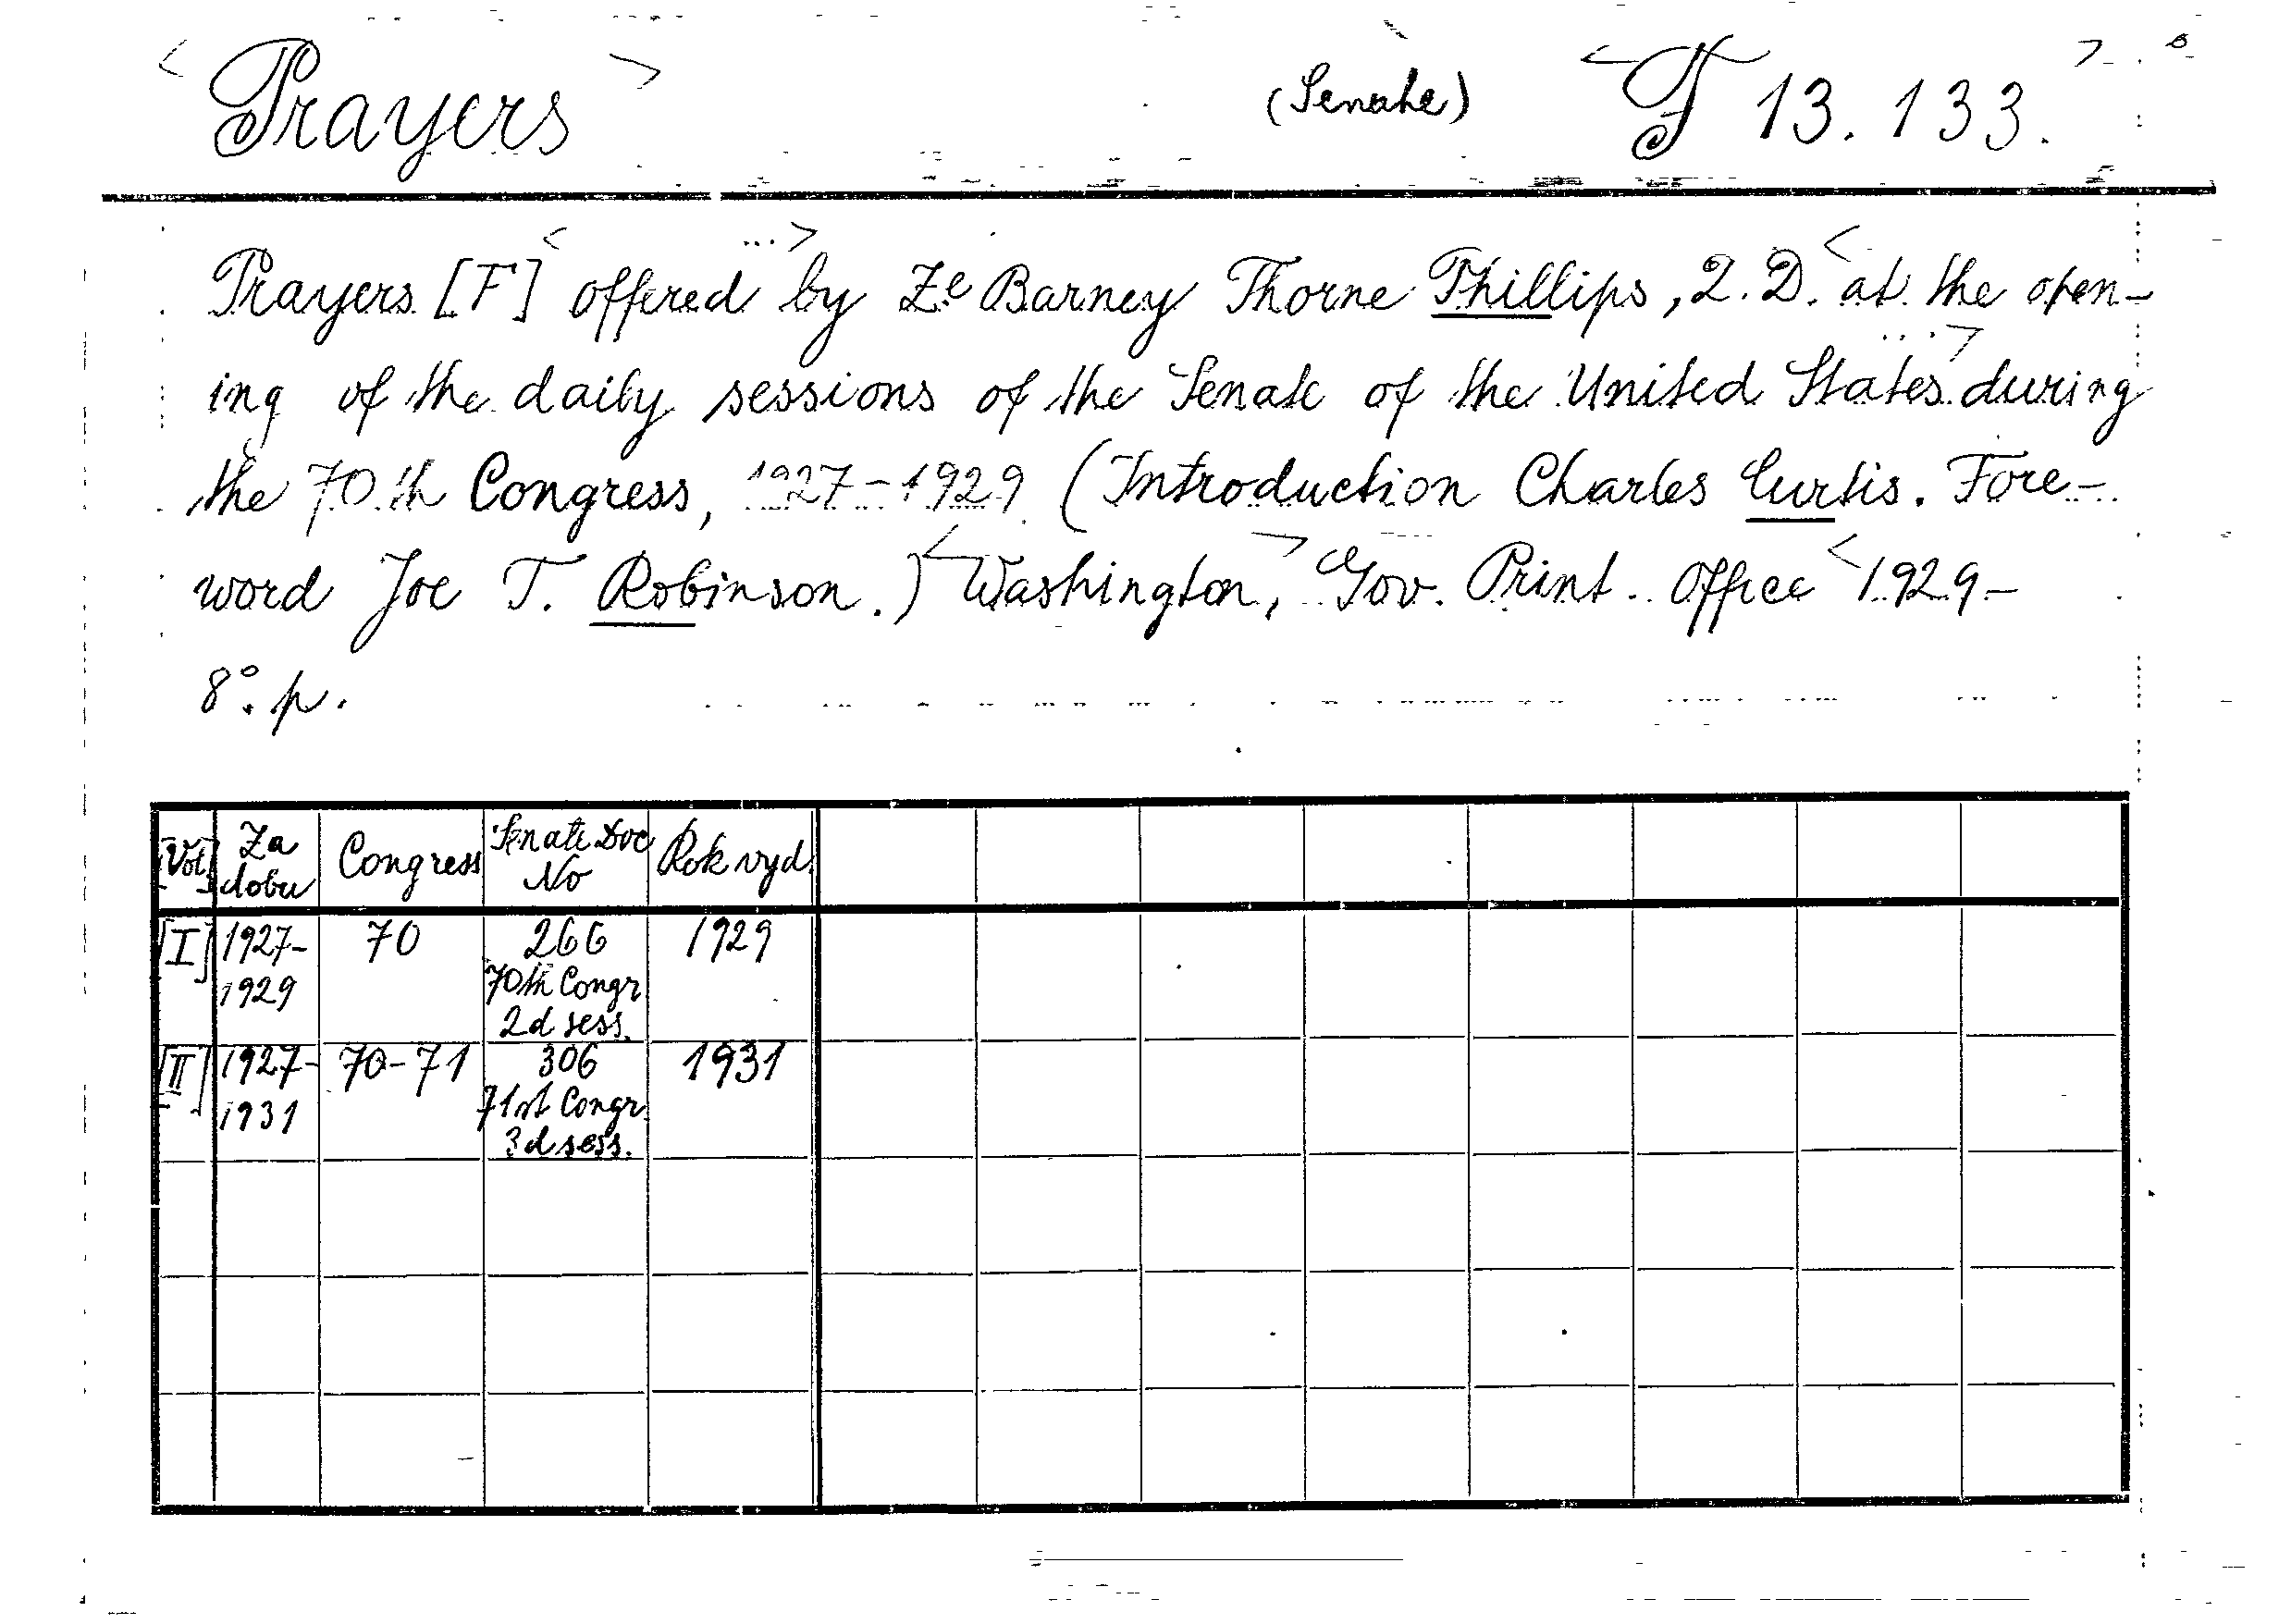 < Prayers > (Senate) < F 13.133. >
Prayers [F] < offered ...> by Ze Barney Thorne Phillips, D. D. < at the open-
ing of the daily sessions of the Senate of the United States ...> during
the 70th Congress, 1927-1929 (Introduction Charles Curtis. Fore-
word Joe T. Robinson.) < Washington, > Gov. Print. Office < 1929-
8°. p.
[Vol.] Za dobu Congress Senate Doc No Rok vyd.
[I] 1927-1929 70 266 70th Congr 2d sess. 1929
[II] 1927-1931 70-71 306 71st Congr. 3d sess. 1931